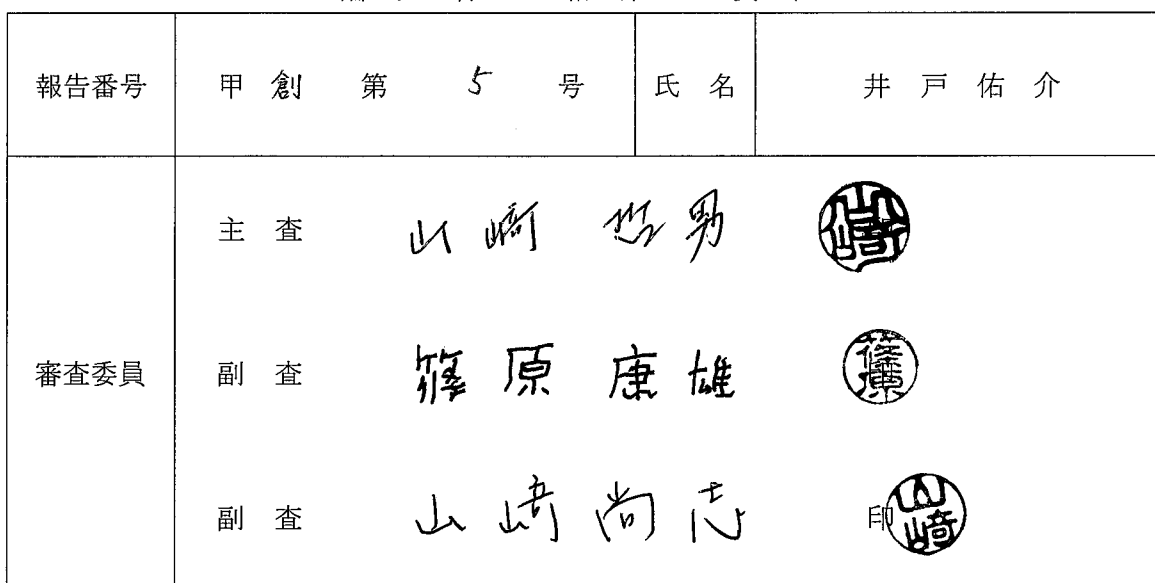 報告番号 甲 創 第 5 号 氏 名 井 戸 佑 介
審査委員
主 査 山 﨑 哲 男
副 査 篠 原 康 雄 篠原
副 査 山 﨑 尚 志 印 山﨑